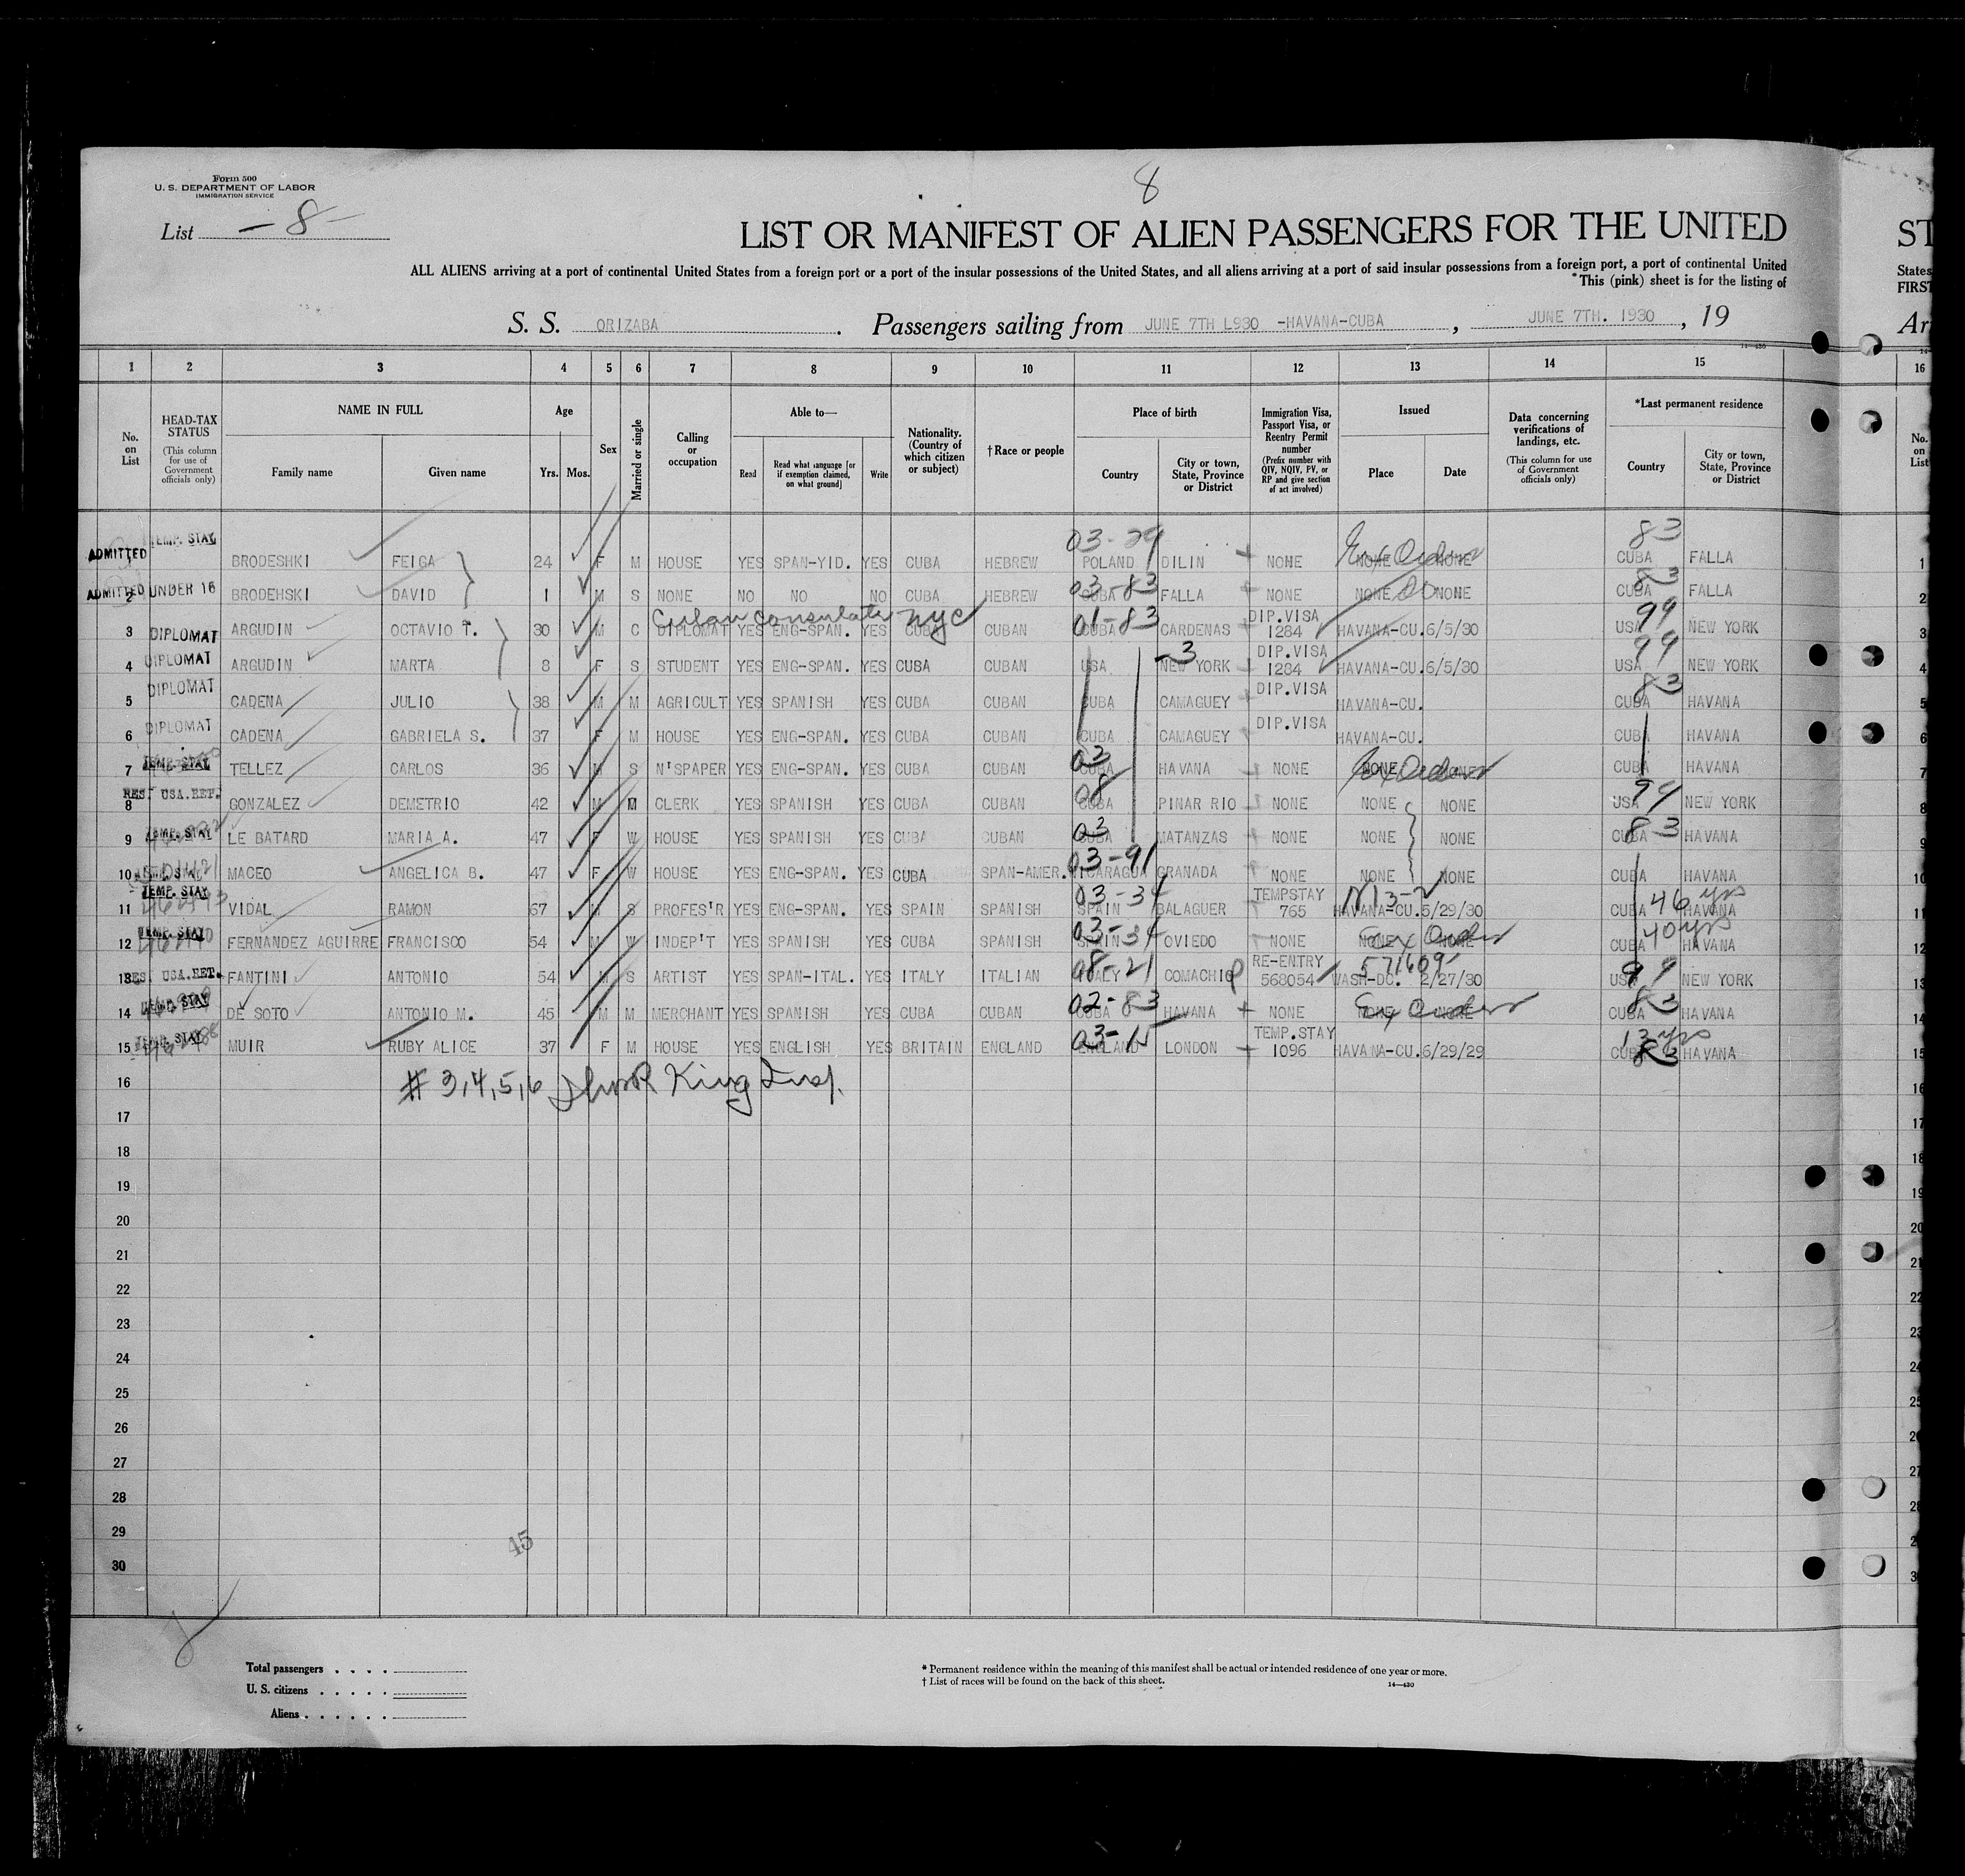 Form 500
U. S. DEPARTMENT OF LABOR
IMMIGRATION SERVICE
8
List – 8 –
LIST OR MANIFEST OF ALIEN PASSENGERS FOR THE UNITED
ST
ALL ALIENS arriving at a port of continental United States from a foreign port or a port of the insular possessions of the United States, and all aliens arriving at a port of said insular possessions from a foreign port, a port of continental United
States
*This (pink) sheet is for the listing of
FIRST
S. S. ORIZABA. Passengers sailing from JUNE 7TH L930 -HAVANA-CUBA, JUNE 7TH. 1930, 19
Ar
1 2 3 4 5 6 7 8 9 10 11 12 13 14 15 16
No. on List
HEAD-TAX STATUS (This column for use of Government officials only)
NAME IN FULL Family name Given name
Age Yrs. Mos.
Sex
Married or single
Calling or occupation
Able to— Read Read what language [or if exemption claimed, on what ground] Write
Nationality. (Country of which citizen or subject)
†Race or people
Place of birth Country City or town, State, Province or District
Immigration Visa, Passport Visa, or Reentry Permit number (Prefix number with QIV, NQIV, PV, or RP and give section of act involved)
Issued Place Date
Data concerning verifications of landings, etc. (This column for use of Government officials only)
*Last permanent residence Country City or town, State, Province or District
No. on List
TEMP. STAY 03-29 83
ADMITTED 1 BRODESHKI FEIGA 24 F M HOUSE YES SPAN-YID. YES CUBA HEBREW POLAND DILIN NONE NONE Ex Order NONE CUBA FALLA 1
03-83 83
ADMITTED 2 UNDER 16 BRODEHSKI DAVID 1 M S NONE NO NO NO CUBA HEBREW CUBA FALLA NONE NONE DO NONE CUBA FALLA 2
Cuban Consulate NYC 01-83 DIP.VISA 99
3 DIPLOMAT ARGUDIN OCTAVIO T. 30 M C DIPLOMAT YES ENG-SPAN. YES CUBA CUBAN CUBA CARDENAS 1284 HAVANA-CU. 6/5/30 USA NEW YORK 3
-3 DIP.VISA 99
4 DIPLOMAT ARGUDIN MARTA 8 F S STUDENT YES ENG-SPAN. YES CUBA CUBAN USA NEW YORK 1284 HAVANA-CU. 6/5/30 USA NEW YORK 4
DIP.VISA 83
5 DIPLOMAT CADENA JULIO 38 M M AGRICULT YES SPANISH YES CUBA CUBAN CUBA CAMAGUEY HAVANA-CU. CUBA HAVANA 5
DIP.VISA
6 DIPLOMAT CADENA GABRIELA S. 37 F M HOUSE YES ENG-SPAN. YES CUBA CUBAN CUBA CAMAGUEY HAVANA-CU. CUBA HAVANA 6
03
7 TEMP. STAY TELLEZ CARLOS 36 M S N'SPAPER YES ENG-SPAN. YES CUBA CUBAN CUBA HAVANA NONE NONE Ex Order NONE CUBA HAVANA 7
08 99
8 RES. USA.RET. GONZALEZ DEMETRIO 42 M M CLERK YES SPANISH YES CUBA CUBAN CUBA PINAR RIO NONE NONE NONE USA NEW YORK 8
03 83
9 TEMP. STAY LE BATARD MARIA A. 47 F W HOUSE YES SPANISH YES CUBA CUBAN CUBA MATANZAS NONE NONE NONE CUBA HAVANA 9
03-91
10 MACEO ANGELICA B. 47 F W HOUSE YES ENG-SPAN. YES CUBA SPAN-AMER. NICARAGUA GRANADA NONE NONE NONE CUBA HAVANA 10
03-34 TEMPSTAY 46 yrs
11 TEMP. STAY VIDAL RAMON 67 M S PROFES'R YES ENG-SPAN. YES SPAIN SPANISH SPAIN BALAGUER 765 HAVANA-CU. 5/29/30 CUBA HAVANA 11
03-34 40 yrs
12 TEMP. STAY FERNANDEZ AGUIRRE FRANCISCO 54 M W INDEP'T YES SPANISH YES CUBA SPANISH SPAIN OVIEDO NONE NONE Ex Order NONE CUBA HAVANA 12
08-21 RE-ENTRY 571609 99
13 RES. USA.RET. FANTINI ANTONIO 54 M S ARTIST YES SPAN-ITAL. YES ITALY ITALIAN ITALY COMACHIO 568054 WASH-DC. 2/27/30 USA NEW YORK 13
02-83 83
14 TEMP. STAY DE SOTO ANTONIO M. 45 M M MERCHANT YES SPANISH YES CUBA CUBAN CUBA HAVANA NONE NONE Ex Order NONE CUBA HAVANA 14
03-15 TEMP.STAY 13 yrs
15 TEMP. STAY MUIR RUBY ALICE 37 F M HOUSE YES ENGLISH YES BRITAIN ENGLAND ENGLAND LONDON 1096 HAVANA-CU. 6/29/29 CUBA 83 HAVANA 15
16 # 3,4,5,6 King Insp. 16
17 17
18 18
19 19
20 20
21 21
22 22
23 23
24 24
25 25
26 26
27 27
28 28
29 45
30
Total passengers
U. S. citizens
Aliens
* Permanent residence within the meaning of this manifest shall be actual or intended residence of one year or more.
† List of races will be found on the back of this sheet.
14—430